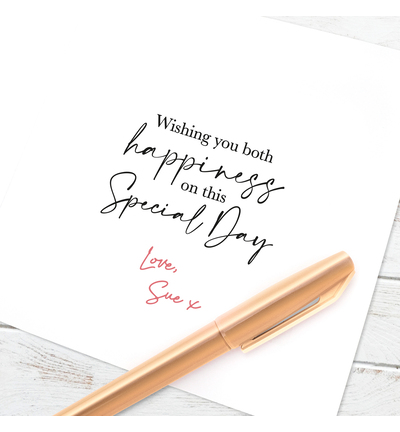 Wishing you both
happiness
on this
Special Day
Love,
Sue x